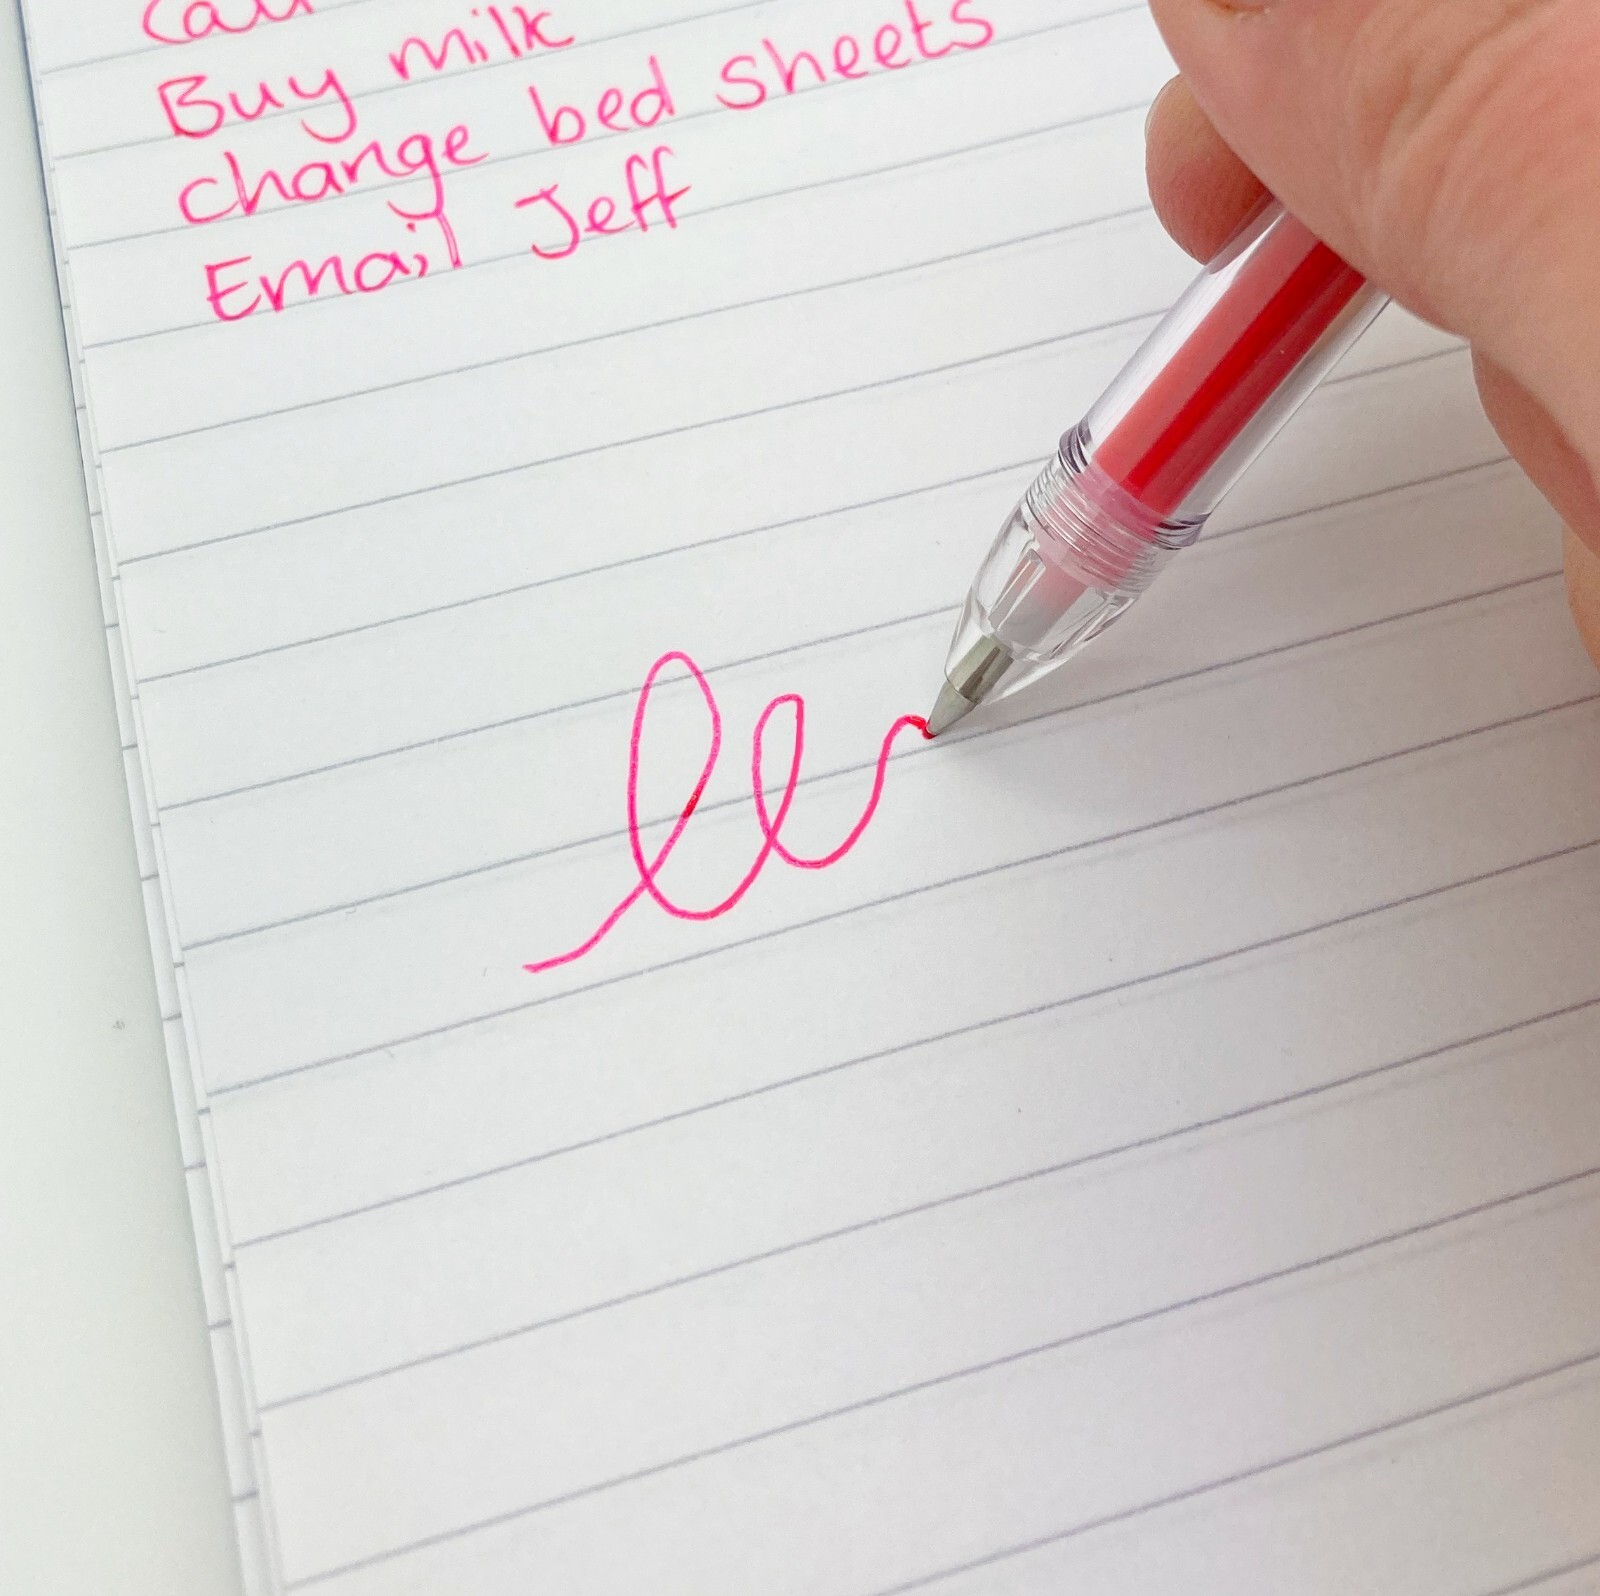 Buy milk
change bed sheets
Email Jeff